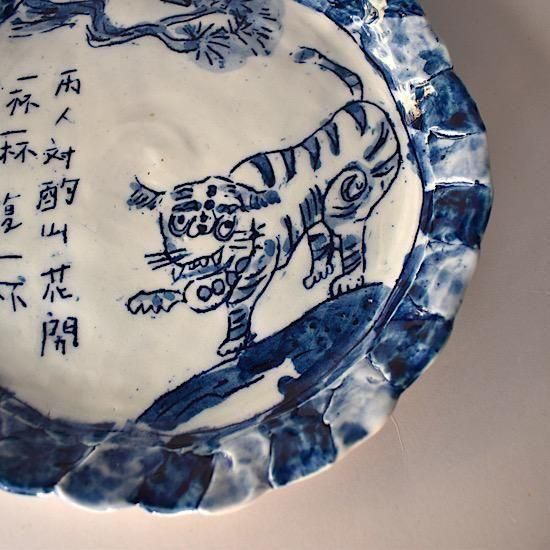 兩人対酌山花開
一杯一杯復一杯